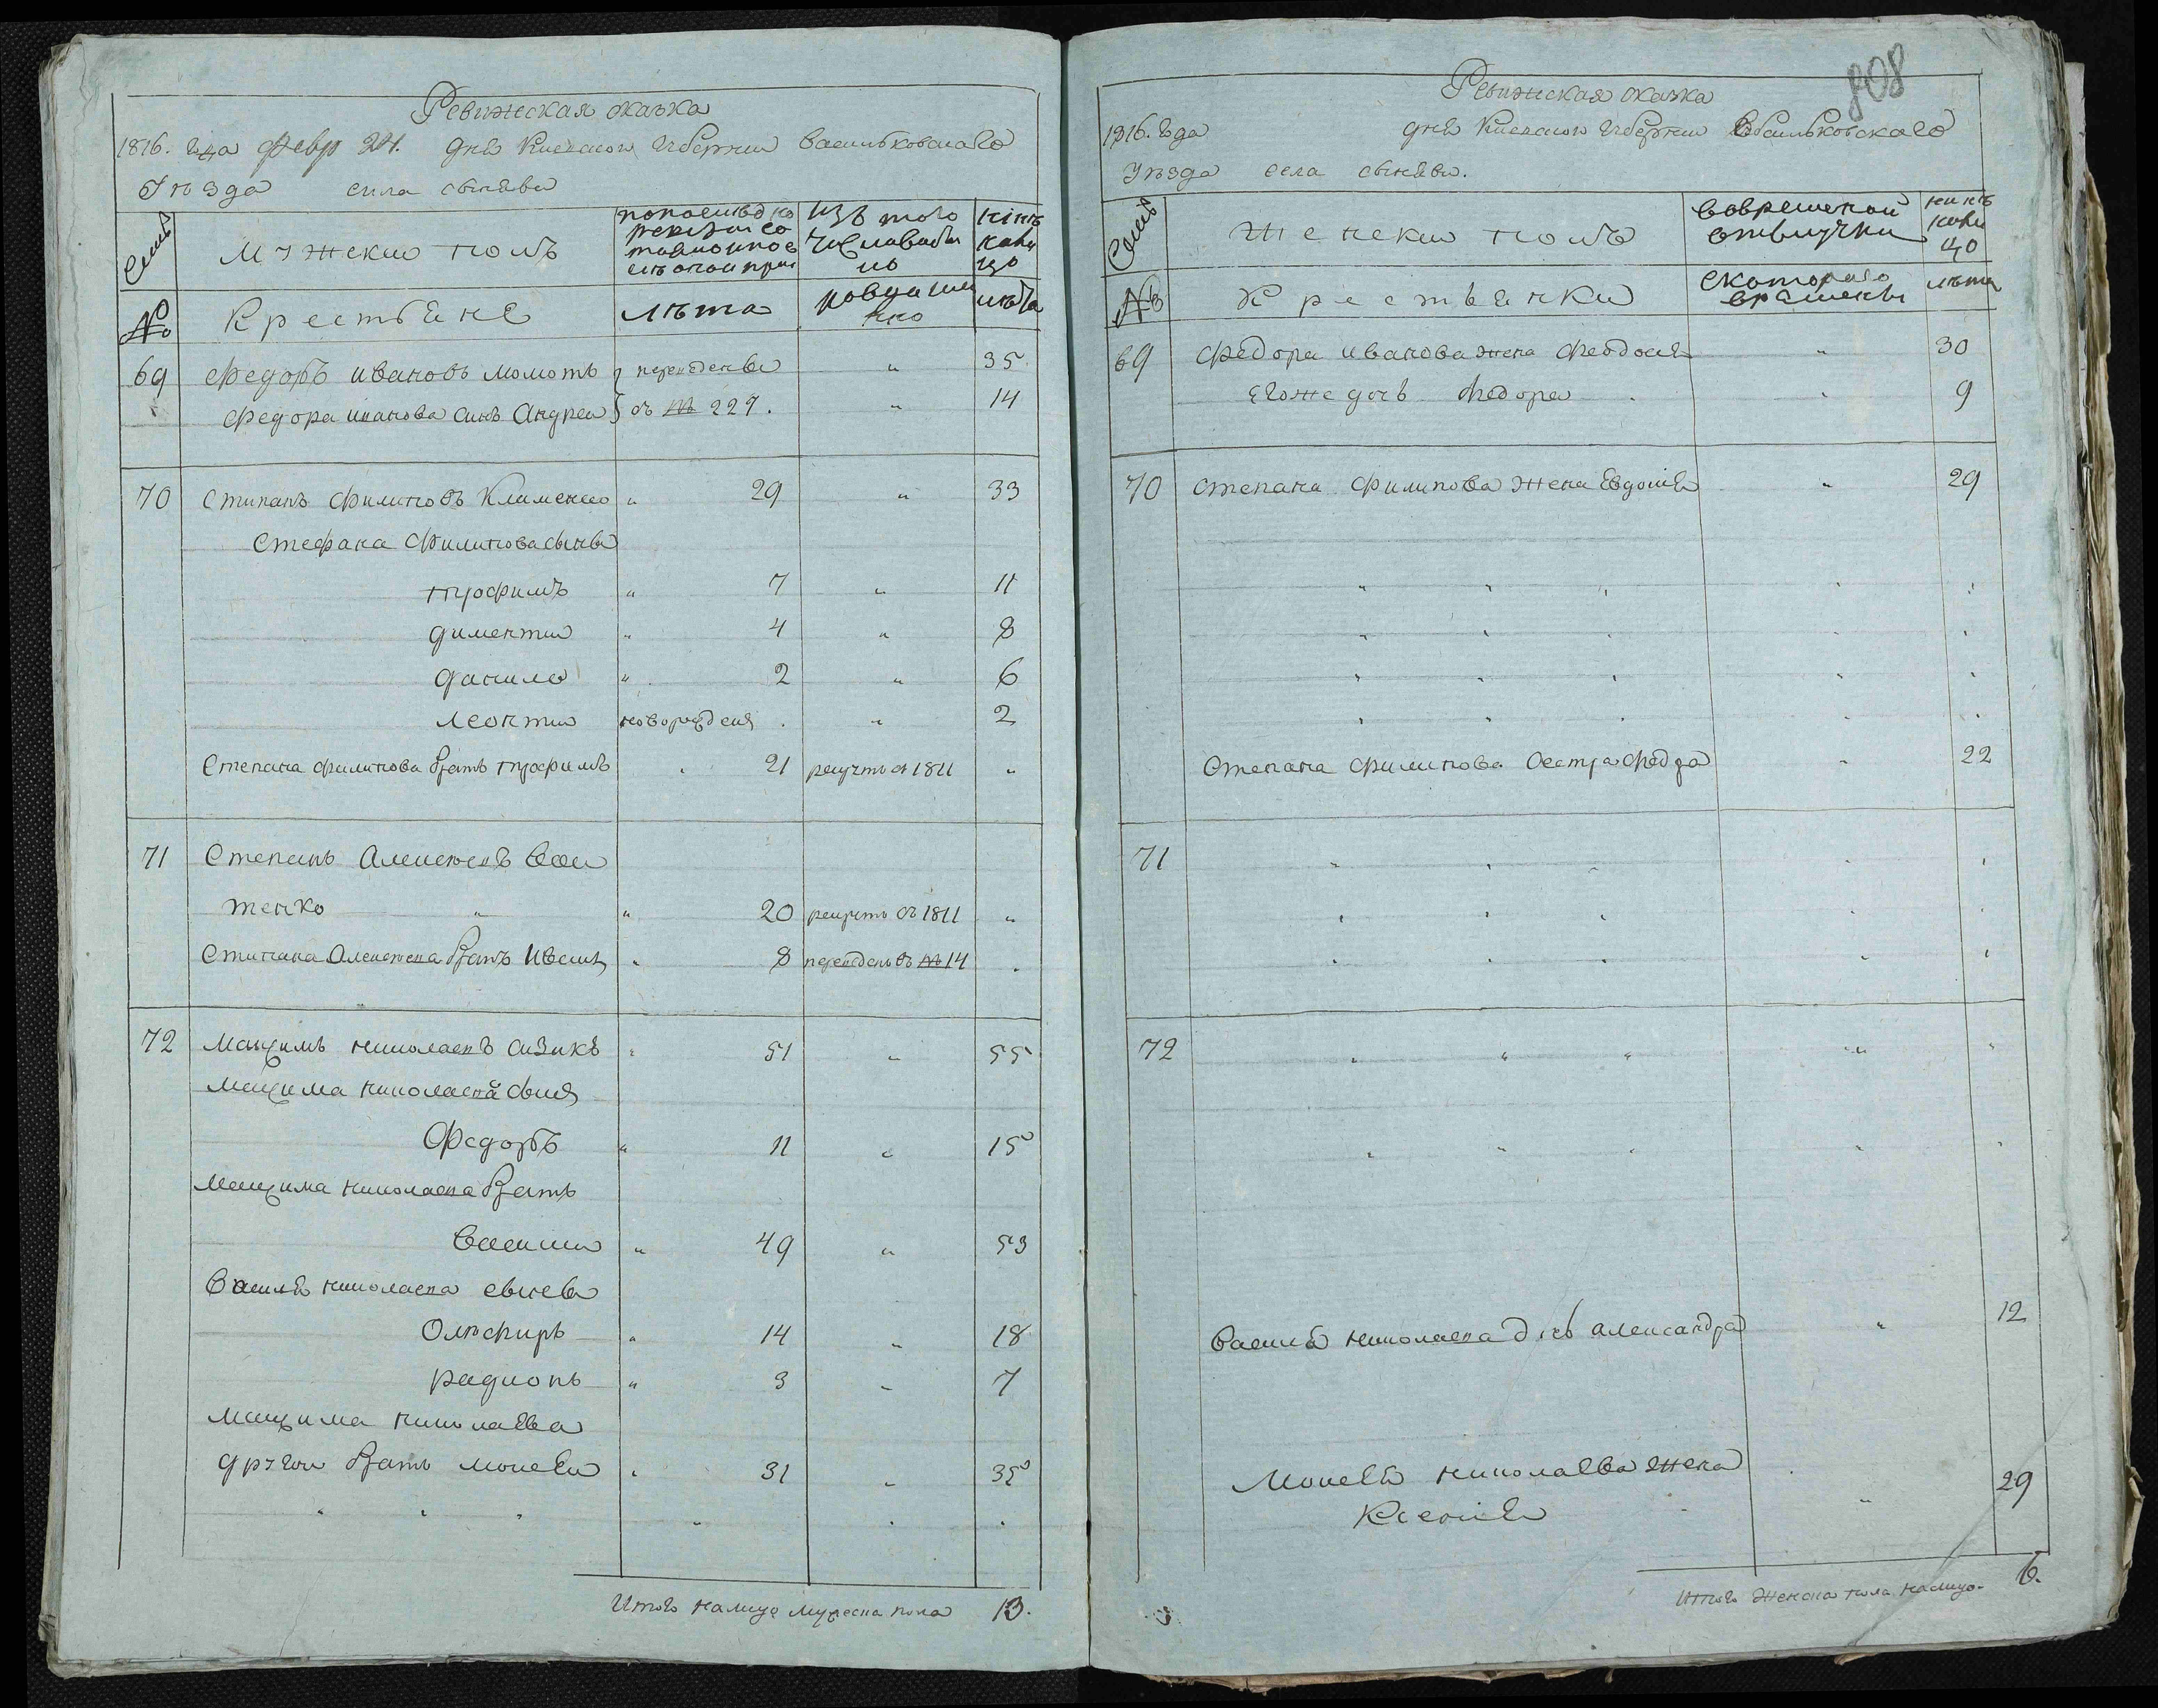 Ревижская сказка
1816. года февр 24. дня Киевской губернии Васильковскаго
уѣзда села сынявы
Семьи
мужеский полъ
по последней ревизии состояло и после оной при
изъ того числа выбыло
нынѣ на лицо
№
Крестьяне
лѣта
когда именно
лѣта
69 Федоръ Ивановъ Момотъ переведены " 35
Федора Иванова синъ Андрей съ № 227. " 14
70 Степанъ Филиповъ Клименко " 29 " 33
Стефана Филипова сыны
трофимъ " 7 " 11
диментий " 4 " 8
данило " 2 " 6
леонтий новорожденъ . " 2
Степана Филипова братъ трофимъ . 21 рекрутъ въ 1811 "
71 Степанъ Алексеевъ
тенко " " 20 рекрутъ въ 1811 "
Степана Алексеева братъ Иванъ . 8 переведенъ въ № 14 .
72 Максимъ николаевъ " 51 " 55
Максима николаева сынъ
Федоръ " 11 " 15
Максима николаева братъ
Василий " 49 " 53
Василя николаева сыны
Олфиръ " 14 " 18
радионъ " 3 " 7
Максима николаева
другой братъ мойсей . 31 " 35
Итого налицо мужеска пола 13.
808
Ревижская сказка
1816. года дня Киевской губернии Васильковскаго
уѣзда села сынявы.
Семьи
Женский полъ
во временной отлучки
нынѣ на лицо
№
Крестьянки
с котораго времены
лѣта
69 Федора Иванова жена Феодосия " 30
Егоже дочь Федора . 9
70 Степана Филипова жена Евдокия " 29
Степана Филипова сестра Федра " 22
71
72
Василя николаева дочь Александра " 12
Мойсея николаева жена
Ксения " 29
Итого женска пола налицо 6.